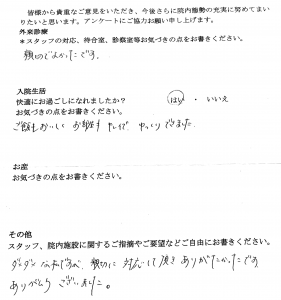 皆様から貴重なご意見をいただき、今後さらに院内態勢の充実に努めてまい
りたいと思います。アンケートにご協力お願い申し上げます。
外来診療
*スタッフの対応、待合室、診察室等お気づきの点をお書きください。
親切でよかったです。
入院生活
快適にお過ごしになれましたか? はい ・ いいえ
点をお書きください。
ご飯もおいしく お部屋も キレイで ゆっくりできました
お産
お気づきの点をお書きください。
その他
スタッフ、院内施設に関するご指摘やご要望などご自由にお書きください。
親切に 対応して頂き ありがたかったです
ありがとう ございました。